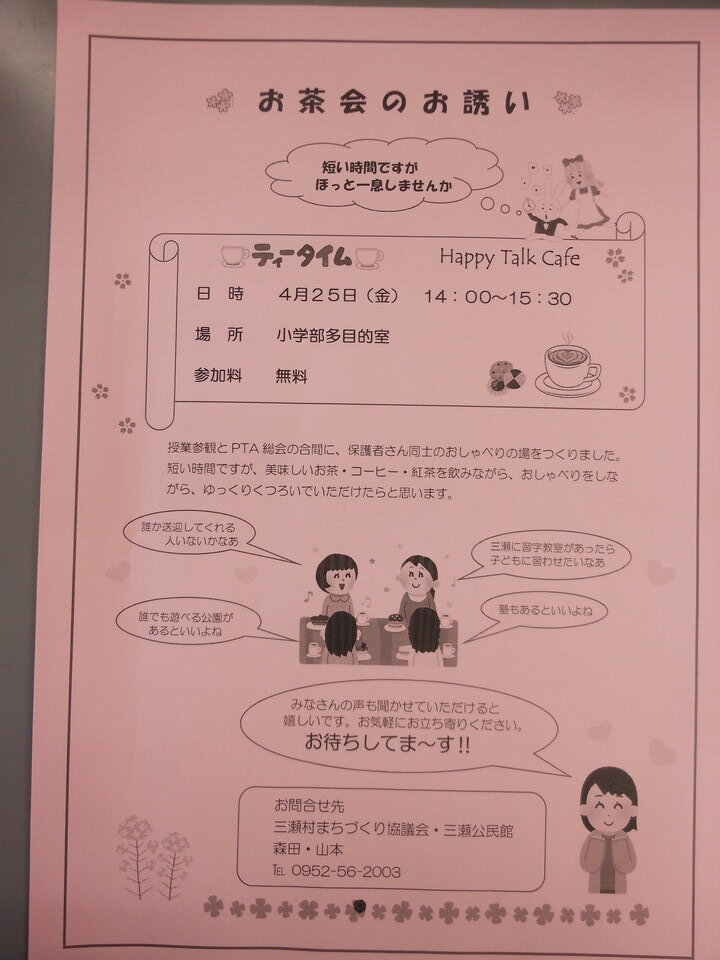 お茶会のお誘い
短い時間ですが
ほっと一息しませんか
ティータイム Happy Talk Cafe
日 時 4月25日（金） 14：00～15：30
場 所 小学部多目的室
参加料 無料
授業参観とPTA総会の合間に、保護者さん同士のおしゃべりの場をつくりました。
短い時間ですが、美味しいお茶・コーヒー・紅茶を飲みながら、おしゃべりをしな
がら、ゆっくりくつろいでいただけたらと思います。
誰か送迎してくれる
人いないかなあ
三瀬に習字教室があったら
子どもに習わせたいなあ
誰でも遊べる公園が
あるといいよね
塾もあるといいよね
みなさんの声も聞かせていただけると
嬉しいです。お気軽にお立ち寄りください。
お待ちしてま～す!!
お問合せ先
三瀬村まちづくり協議会・三瀬公民館
森田・山本
℡ 0952-56-2003